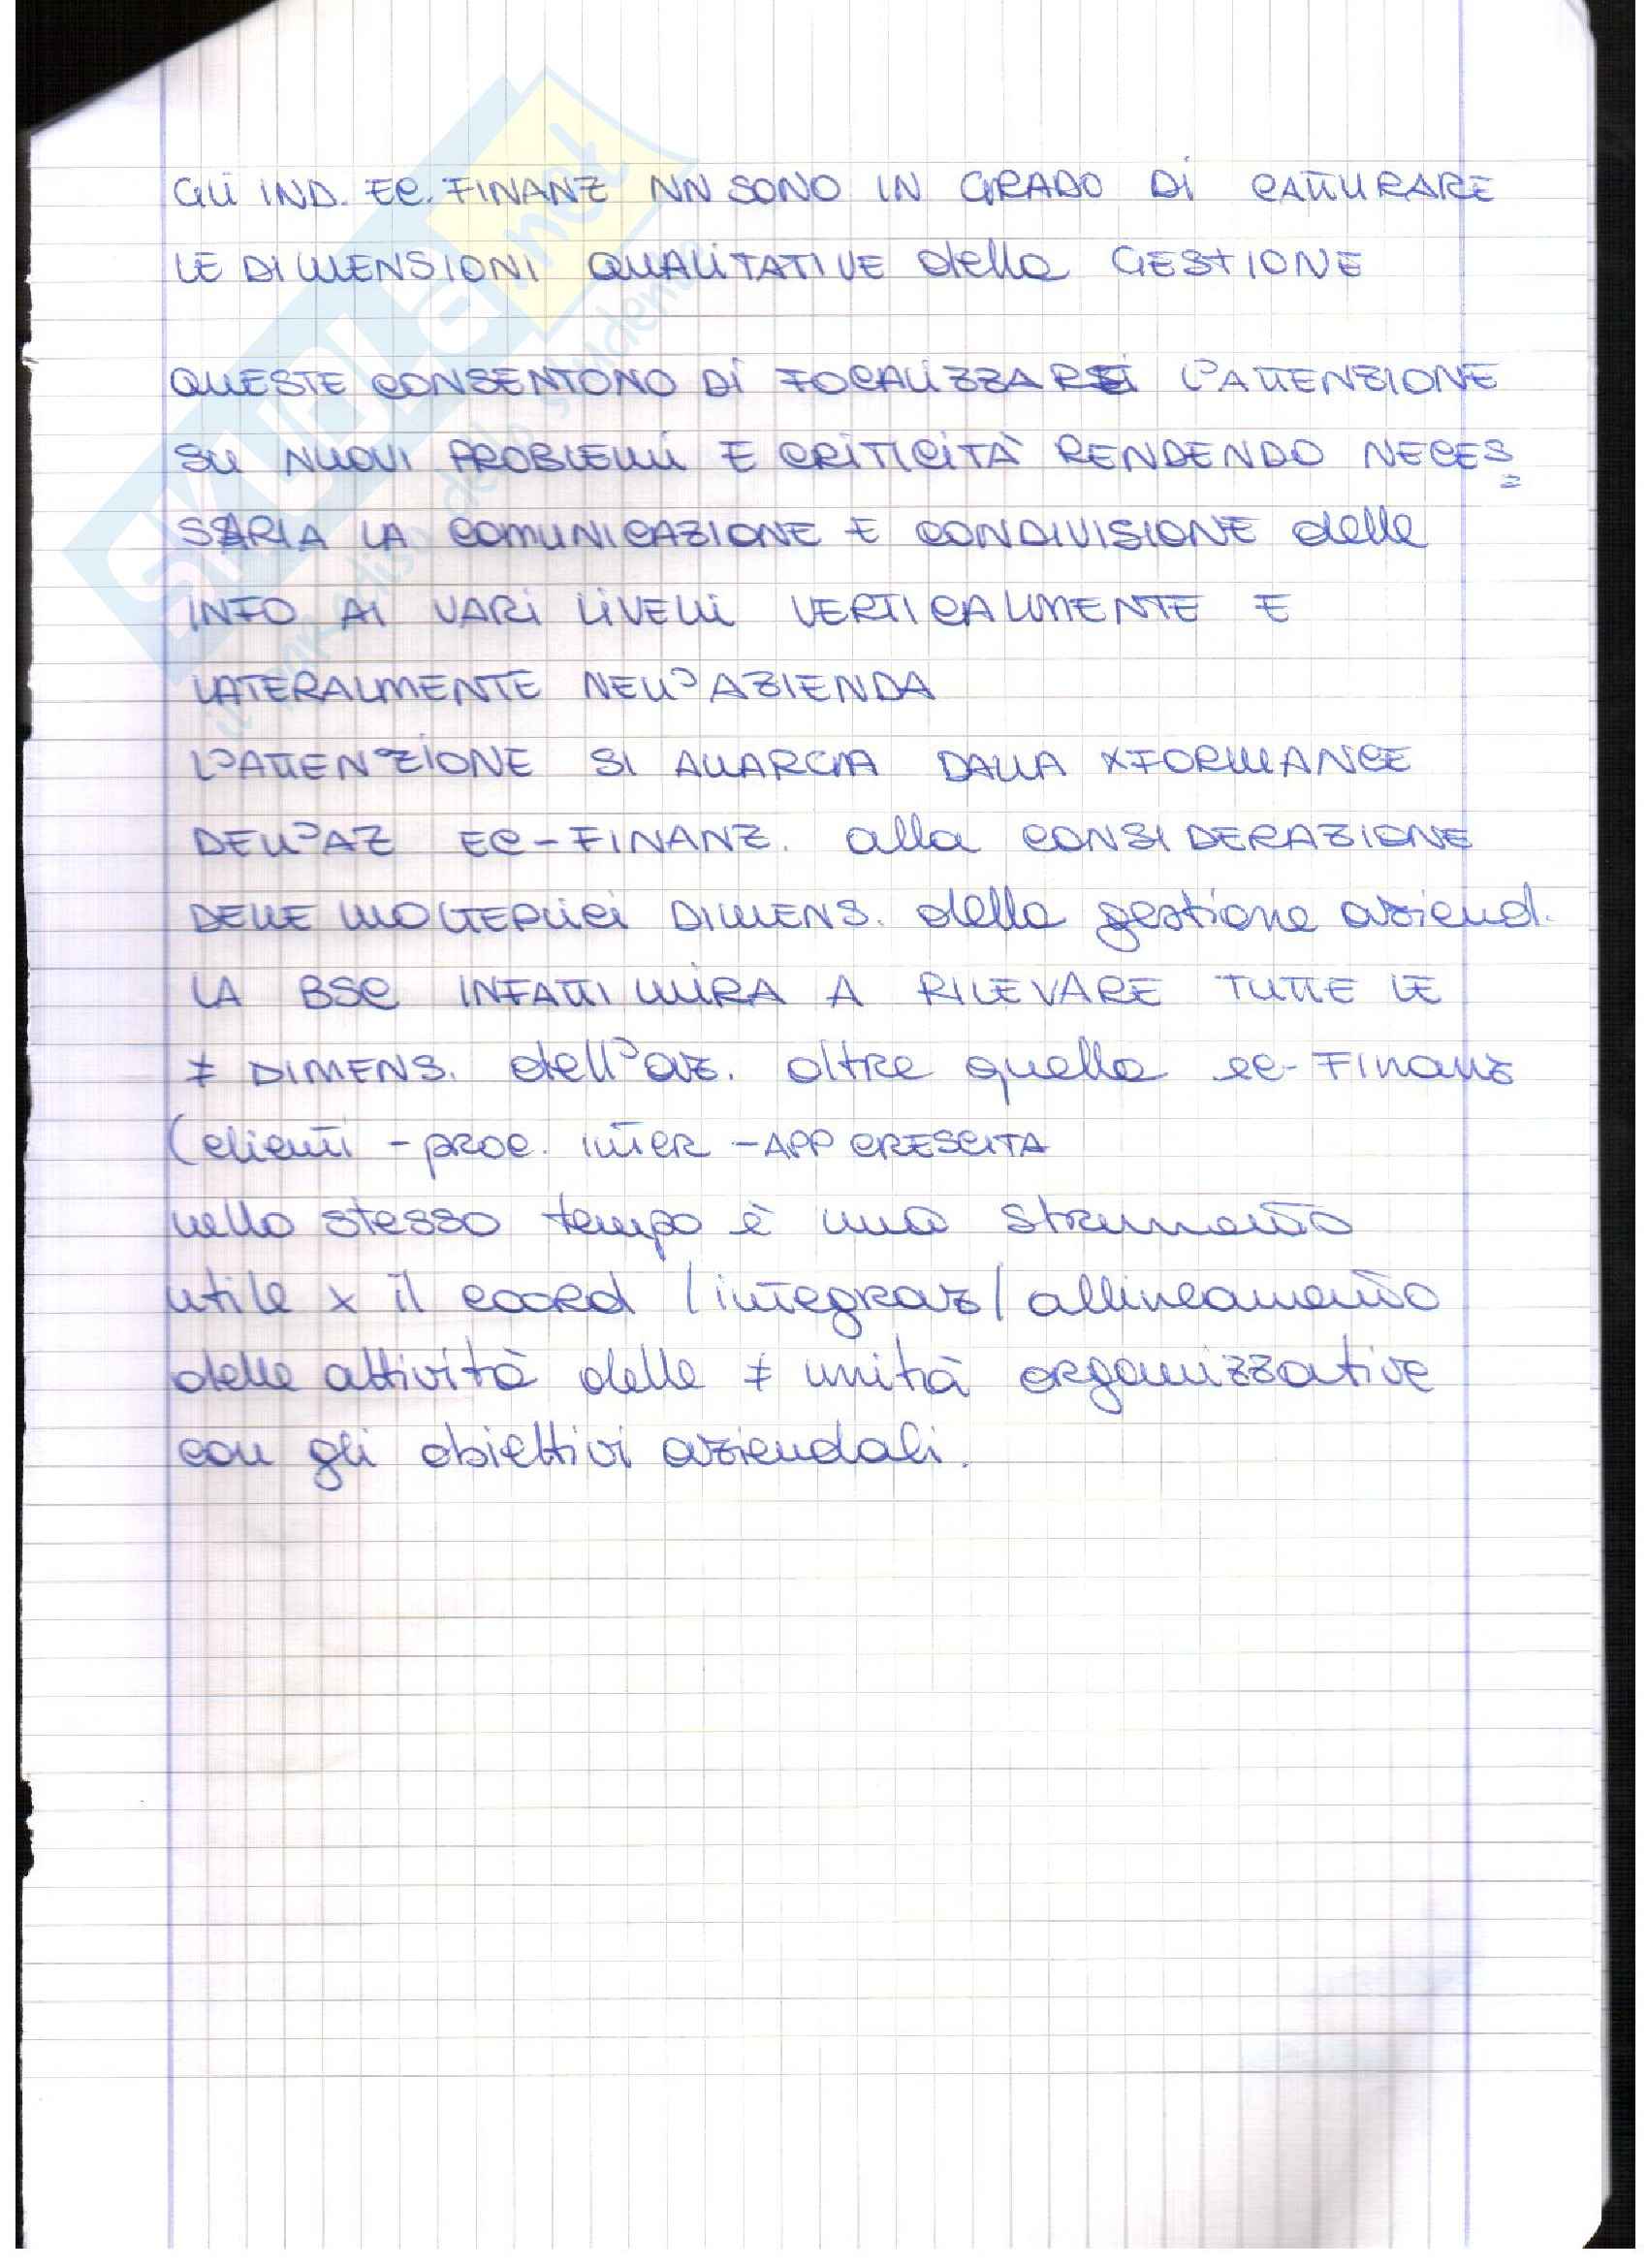 GLI IND. EC. FINANZ NN SONO IN GRADO DI CATTURARE
LE DIMENSIONI QUALITATIVE della GESTIONE
QUESTE CONSENTONO DI FOCALIZZARE L'ATTENZIONE
SU NUOVI PROBLEMI E CRITICITÀ RENDENDO NECES=
SARIA LA COMUNICAZIONE E CONDIVISIONE delle
INFO AI VARI LIVELLI VERTICALMENTE E
LATERALMENTE NELL'AZIENDA
L'ATTENZIONE SI ALLARGA DALLA XFORMANCE
DELL'AZ EC-FINANZ. alla CONSIDERAZIONE
DELLE MOLTEPLICI DIMENS. della gestione aziend.
LA BSC INFATTI MIRA A RILEVARE TUTTE LE
≠ DIMENS. dell'az. oltre quella ec-FINANZ
(clienti - proc. inter - APP CRESCITA
nello stesso tempo è uno strumento
utile x il coord / integraz / allineamento
delle attività delle ≠ unità organizzative
con gli obiettivi aziendali.
SKUOLA.net
il paradiso dello studente